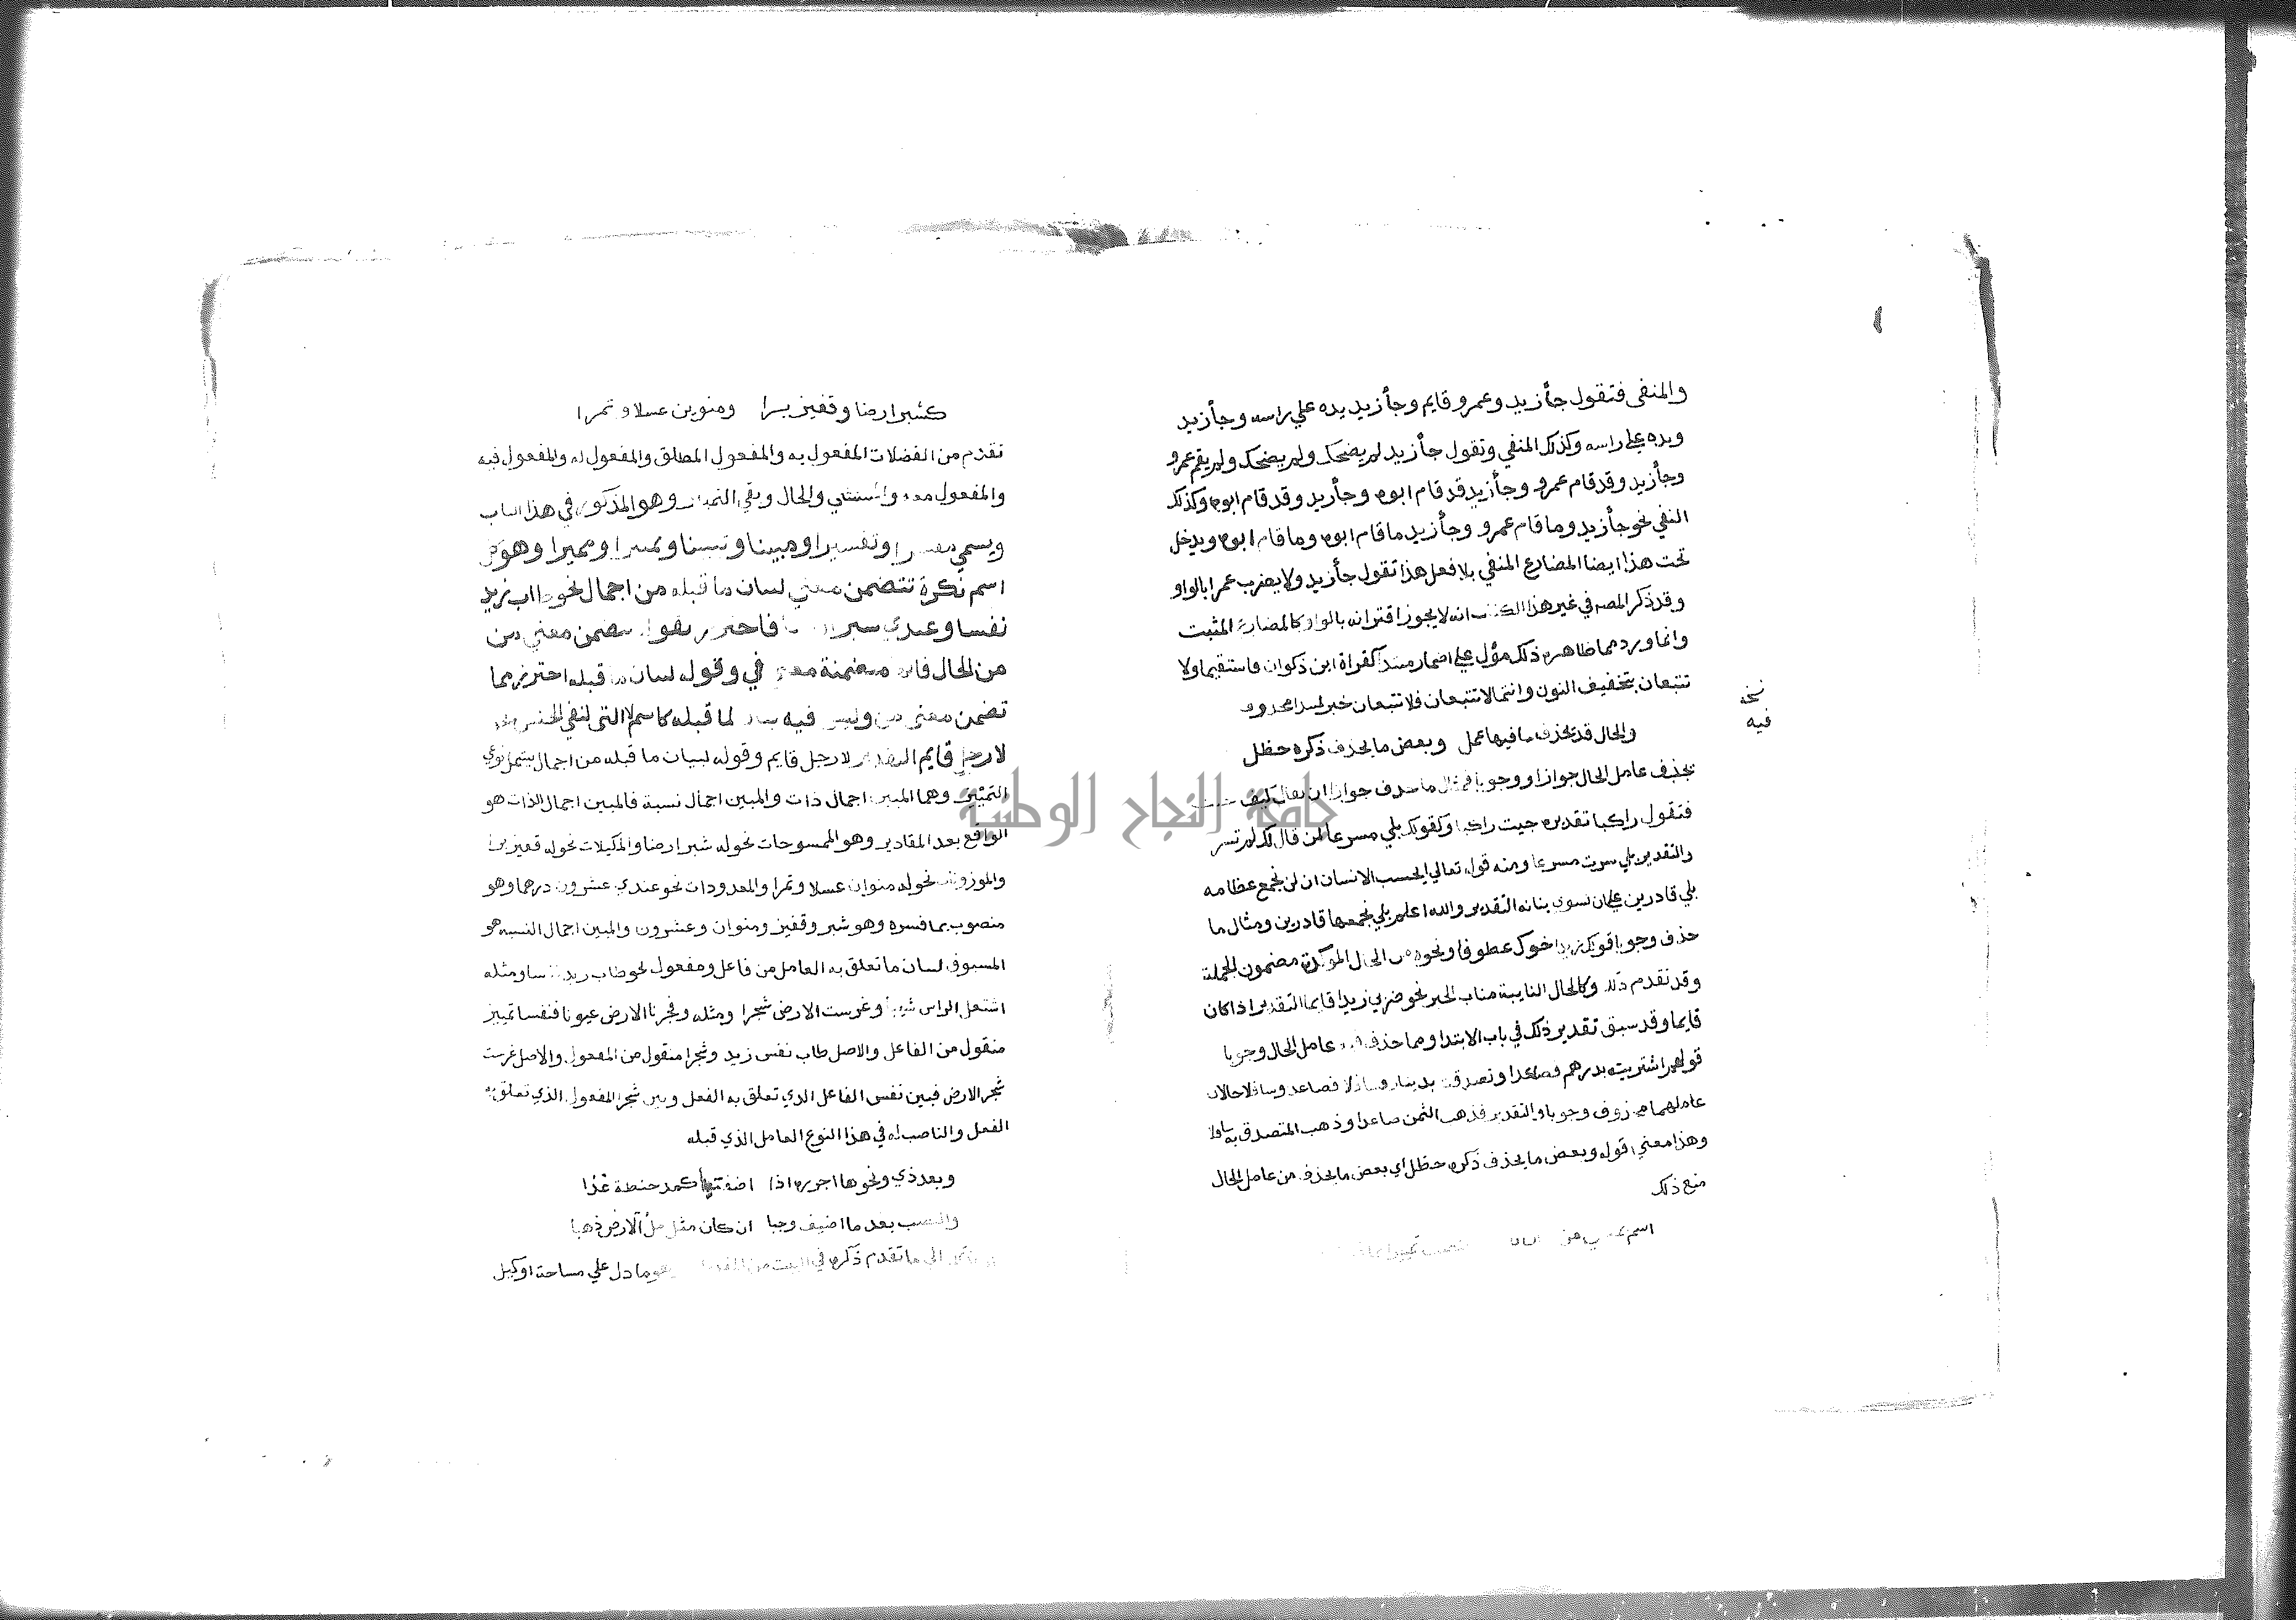 والمنفى فتقول جأ زيد وعمرو قايم وجأ زيد يده علي راسه وجأ زيد
ويده علي راسه وكذلك المنفي وتقول جأ زيد لم يضحك ولم يضحك ولم يقم عمرو
وجأ زيد وقد قام عمرو وجأ زيد قد قام ابوه وجأ زيد وقد قام ابوه وكذلك
النفي نحو جأ زيد وما قام عمرو وجأ زيد ما قام ابوه وما قام ابوه ويدخل
تحت هذا ايضا المضارع المنفي بلا فعل هذا تقول جأ زيد ولا يضرب عمرا بالواو
وقد ذكر المصه في غير هذا الكتاب انه لا يجوز اقترانه بالواو كالمضارع المثبت
وانما ورد مما ظاهره ذلك مؤل علي اضمار مبتدا كقراة ابن ذكوان فاستقيما ولا
تتبعان بتخفيف النون وانتما لا تتبعان فلا تتبعان خبر لمبتدا محذوف
نسخه
فيه
والحال قد يحذف ما فيها عمل وبعض ما يحذف ذكره حظل
يحذف عامل الحال جوازا ووجوبا فمثال ما حذف جوازا ان يقال كيف
فتقول راكبا تقديره جيت راكبا وكقولك بلي مسرعا لمن قال لك لم تسر
والتقدير بلي سرت مسرعا ومنه قوله تعالي ايحسب الانسان ان لن نجمع عظامه
بلي قادرين علي ان نسوي بنانه التقدير والله اعلم بلي نجمعها قادرين ومثال ما
حذف وجوبا قولك زيد اخوك عطوفا ونحوه من الحال الموكدة مضمون الجملة
وقد تقدم ذلك وكالحال النايبة مناب الخبر نحو ضربي زيدا قايما التقدير اذا كان
قايما وقد سبق تقدير ذلك في باب الابتدا ومما حذف فيه عامل الحال وجوبا
قولهم اشتريته بدرهم فصاعدا وتصدقت بدينار فسافلا فصاعدا وسافلا حالان
عاملهما محذوف وجوبا والتقدير فذهب الثمن صاعدا وذهب المتصدق به سافلا
وهذا معني قوله وبعض ما يحذف ذكره حظل اي بعض ما يحذف من عامل الحال
منع ذلك
اسم بمعني من
كشبر ارضا وقفيز برا ومنوين عسلا وتمرا
تقدم من الفضلات المفعول به والمفعول المطلق والمفعول له والمفعول فيه
والمفعول معه والمستثني والحال وبقي التمييز وهو المذكور في هذا الباب
ويسمي مفسرا وتفسيرا ومبينا وتبيينا وتمييزا ومميزا وهو كل
اسم نكرة تتضمن معني لبيان ما قبله من اجمال نحو طاب زيد
نفسا وعندي شبر فاحترز بقوله يتضمن معني من
من الحال فانه متضمنة معني في وقوله لبيان ما قبله احترز مما
تضمن معني من وليس فيه بيان لما قبله كاسم لا التي لنفي الجنس نحو
لا رجل قايم التقدير لا رجل قايم وقوله لبيان ما قبله من اجمال يشمل نوعي
التمييز وهما المبين اجمال ذات والمبين اجمال نسبة فالمبين اجمال الذات هو
الواقع بعد المقادير وهو الممسوحات نحو له شبر ارضا والمكيلات نحو له قفيز برا
والموزونات نحو له منوان عسلا وتمرا والمعدودات نحو عندي عشرون درهما وهو
منصوب بما فسره وهو شبر وقفيز ومنوان وعشرون والمبين اجمال النسبة هو
المسبوق لبيان ما تعلق به العامل من فاعل ومفعول نحو طاب زيد نفسا ومثله
اشتعل الراس شيبا وغرست الارض شجرا ومثله وفجرنا الارض عيونا فنفسا تمييز
منقول من الفاعل والاصل طاب نفس زيد وشجرا منقول من المفعول والاصل غرست
شجر الارض فبين نفس الفاعل الذي تعلق به الفعل وبين شجر المفعول الذي تعلق به
الفعل والناصب له في هذا النوع العامل الذي قبله
وبعد ذي ونحوها اجرره اذا اضفتها كمد حنطة غذا
والنصب بعد ما اضيف وجبا ان كان مثل ملأ الارض ذهبا
الي ما تقدم ذكره في البيت من المقدرات وهو ما دل علي مساحة او كيل
جامعة النجاح الوطنية